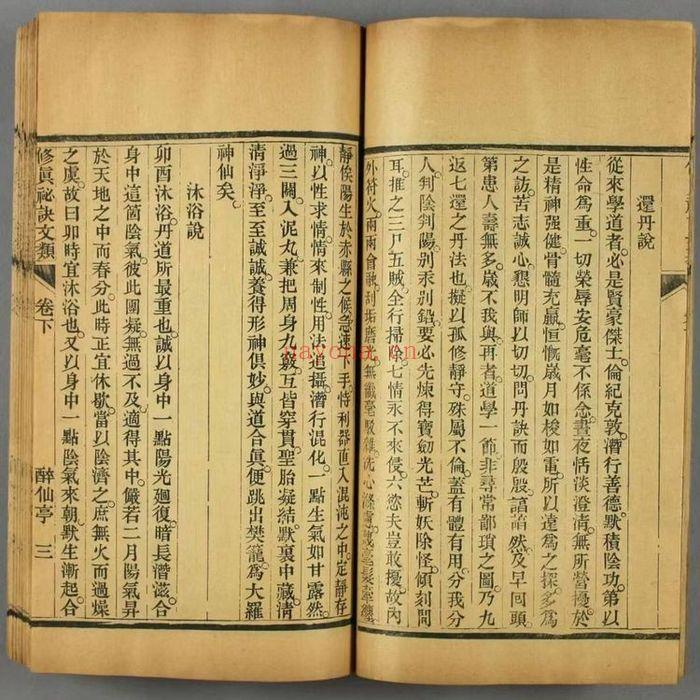 還丹說
從來學道者必是賢豪傑士倫紀克敦潛行善德默積陰功第以
性命爲重一切榮辱安危毫不係念晝夜恬淡澄清無所營擾於
是精神强健骨髓充贏恒慨歲月如梭如電所以遠爲之探多爲
之訪苦志誠心懇明師以切切問丹訣而殷殷諳焰然及早回頭
第患人壽無多歲不我與再者道學一節非尋常鄙瑣之圖乃九
返七還之丹法也擬以孤修靜守殊屬不倫蓋有體有用分我分
人判陰判陽別汞別鉛要必先煉得寶劍光芒斬妖除怪傾刻間
耳推之三尸五賊全行掃除七情永不來侵六慾夫豈敢擾故內
外符火兩兩會融刮垢磨光無纖毫駁雜洗心滌慮
靜俟陽生於赤縣之候急速下手恃利器直入混沌之中定靜存
神以性求情情來制性用法追攝潛行混化一點生氣如甘露然
過三關入泥丸兼把周身九竅互皆穿貫聖胎凝結默裏中藏清
清淨淨至至誠誠養得形神俱妙與道合眞便跳出樊籠爲大羅
神仙矣
沐浴說
卯酉沐浴丹道所最重也誠以身中一點陽光廻復暗長潛滋合
身中這箇陰氣彼此團凝無過不及適得其中儼若二月陽氣昇
於天地之中而春分此時正宜休歇當以陰濟之庶無火而過燥
之虞故曰卯時宜沐浴也又以身中一點陰氣來朝默生漸起合
修眞祕訣文類 卷下 醉仙亭 三
nayona.cn